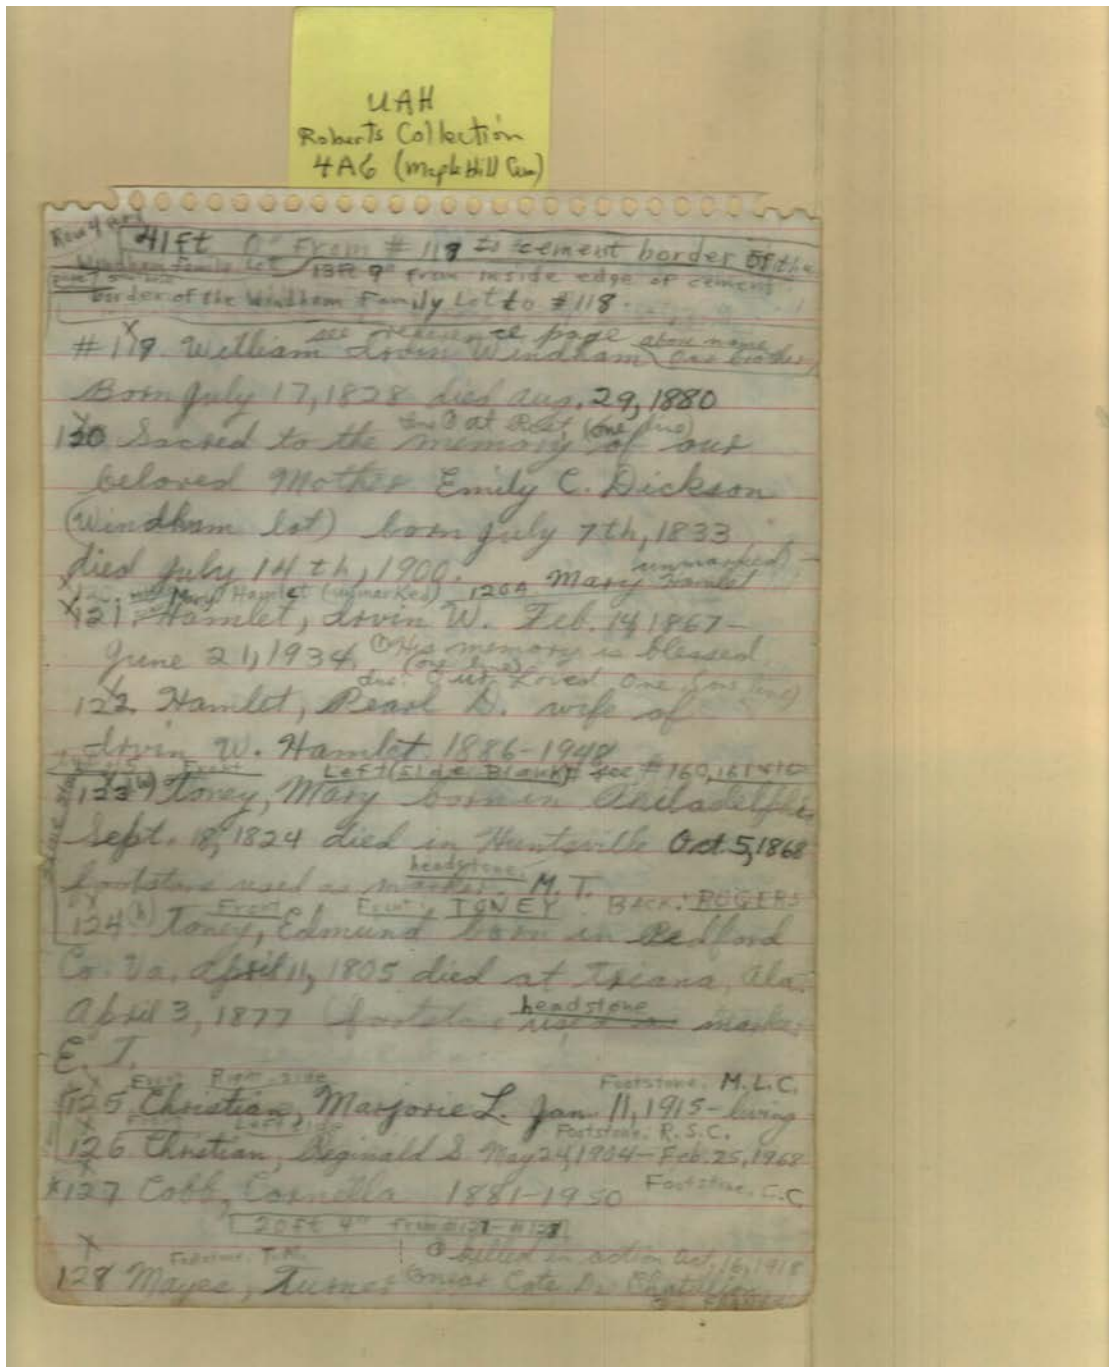 UAH
Roberts Collection
4A6 (Maple Hill Cem)
Row 4
41ft 0" From # 119 to cement border of the
Windham Family Lot / 13ft 9" from inside edge of cement
border of the Windham Family Lot to #118.
see reference page above name
#119. William Irvin Windham (our brother)
Born July 17, 1828 died Aug. 29, 1880
at Rest (one line)
120 Sacred to the memory of our
beloved Mother Emily C. Dickson
(Windham lot) born July 7th, 1833
unmarked)
died July 14th, 1900. 120A. Mary Hamlet
Mary Hamlet (unmarked)
121. Hamlet, Irvin W. Feb. 14, 1867-
June 21, 1934. His memory is blessed
(one line)
Our Loved One (one line)
122. Hamlet, Pearl D. wife of
Irvin W. Hamlet. 1886-1948
Front Left (Side Blank) see #160, 161
123 Toney, Mary born in Philadelphia
Sept. 18, 1824 died in Huntsville Oct. 5, 1868
headstone.
footstone used as marker. M. T.
Front Front: TONEY. Back: ROGERS
124 Toney, Edmund born in Bedford
Co. Va. April 11, 1805 died at Triana, Ala.
headstone
April 3, 1877 (footstone used as marker
E. T.
Front Right side Footstone, M.L.C.
125 Christian, Marjorie L. Jan. 11, 1915-living
Front Left side Footstone, R.S.C.
126 Christian, Reginald S. May 24, 1904-Feb. 25, 1968
Footstone, C.C
127 Cobb, Cornelia 1881-1950
20ft 4" from #127-#128
killed in action Oct, 16, 1918
128 Mayes, Turner near Cote De Chatillon
FRANCE